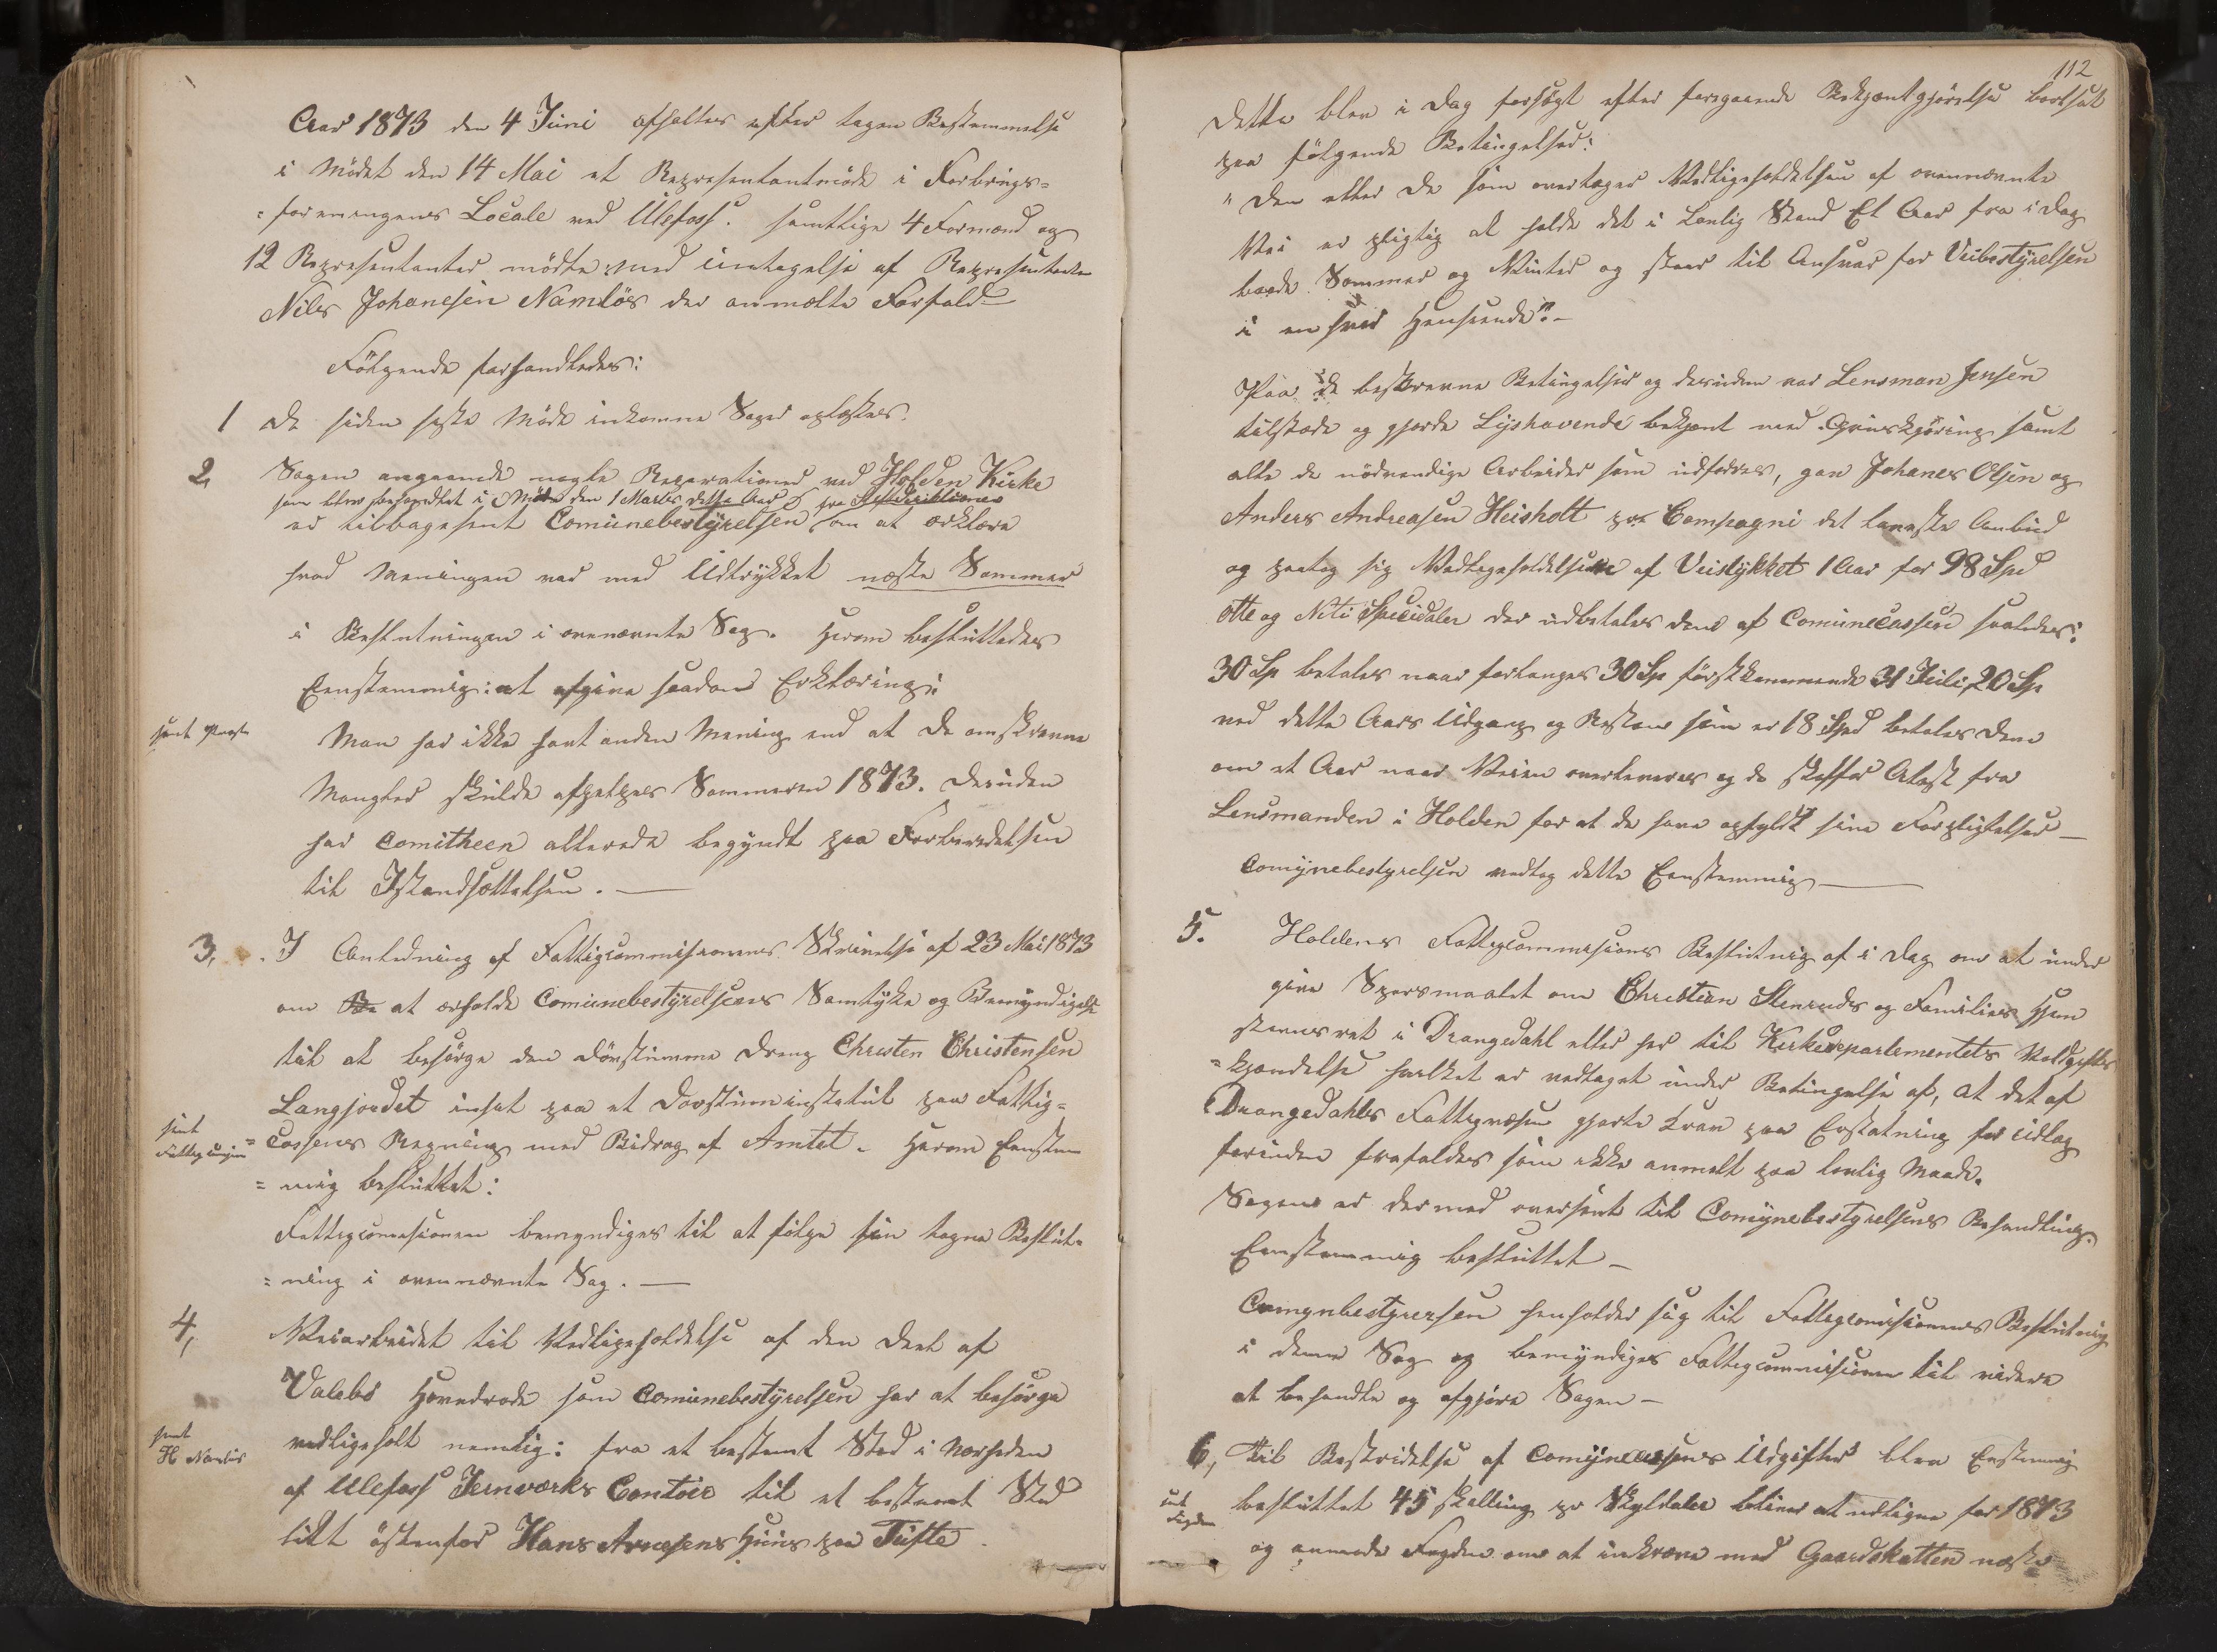 Aar 1873 den 4 Juni afholtes efter tagen Bestemmelse
i Mödet den 14 Mai et Representantmöde i Forbrugs-
=foreningens Locale ved Ulefoss. samtlige 4 Formænd og
12 Representanter mödte med undtagelse af Representanten
Nils Johanesen Namlös der anmelte Forfald
Fölgende forhandledes:
1 De siden siste Möde indkomne Sager oplæstes.
2, Sagen angaaende nogle Reparationer ved Holden Kirke
som blev behandlet i Möde den 1 Marts dette Aar fra Stiftdirektionen
er tilbagesent Comunebestyrelsen om at erklære
hvad Meningen var med Udtrykket næste Sommer
i Beslutningen i ovennævnte Sag. Herom besluttedes
Eenstemmig: at afgive saadan Erklæring:
sent
Man har ikke havt anden Mening end at de omskrevne
Mangler skulde afhjelpes Sommeren 1873. Desuden
har Comitheen allerede begyndt paa Forberedelsen
til Istandsættelsen. —
3, I Anledning af Fattigcommissionens Skrivelse af 23 Mai 1873
om at erholde Comunebestyrelsens Samtykke og Bemyndigelse
til at besörge den dövstumme Dreng Christen Christensen
Langjordet indsat paa et Dovstuminstitut paa Fattig=
sent
=cassens Regning med Bidrag af Amtet. Herom Eenstem
=mig besluttet:
Fattigcomisionen bemyndiges til at fölge sin tagne Beslut=
=ning i ovennævnte Sag. —
4, Veiarbeidet til Vedligeholdelse af den Deel af
Valebö Hovedrode som Comunebestyrelsen har at besörge
sent
H
vedligeholt nemlig: fra et bestemt Sted i Nærheden
af Ulefoss Jernværks Contoir til et bestemt Sted
lidt östenfor Hans Arnesens Huus paa Tufte.
112
Dette blev i Dag forsögt efter foregaaende Bekjentgjörelse bortsat
paa fölgende Betingelser:
"Den eller de som overtager Vedligeholdelsen af ovennævnte
Vei er pligtig at holde det i Lovlig Stand Et Aar fra i Dag
baade Sommer og Vinter og staar til Ansvar for Veibestyrelsen
i en hver Henseende". —
Paa de beskrevne Betingelser og desuden var Lensman Jensen
tilstæde og gjorde Lysthavende bekjent med Gruskjöring samt
alle de nödvendige Arbeider som udfordres, gav Johanes Olsen og
Anders Andreasen Heisholt pr Compagni det laveste Anbud
og paatog sig Vedligeholdelsen af Veistykket 1 Aar for 98 Spd
otte og Niti Speciedaler der udbetales dem af Comunecassen saaledes:
30 Sp betales naar forlanges 30 Sp förstkommende 31 Juli, 20 Sp
ved dette Aars Udgang og Resten som er 18 Spd betales dem
om et Aar naar Veien overleveres og de skaffer Atest fra
Lensmanden i Holden for at de have opfyldt sine Forpligtelser —
Comynebestyrelsen vedtog dette Eenstemmig —
5. Holdens Fattigcommisions Beslutning af i Dag om at under
give Spörsmaalet om Christian Stenruds og Families Hjem
stavnsret i Drangedahl eller her til Kirkedepartementets Voldgifts
=kjendelse hvilket er vedtaget under Betingelse af, at det af
Drangedahls Fattigvæsen gjorte Krav paa Erstatning for Udlæg
forinden frafaldes som ikke anmelt paa lovlig Maade.
Sagen er dermed oversent til Comynebestyrelsens Behandling.
Eenstemmig besluttet —
Comynbestyrelsen henholder sig til Fattigcomisionens Beslutning
i denne Sag og bemyndiges Fattigcommisionen til videre
at behandle og afgjöre Sagen —
6, Til Bestridelse af Comynecassens Udgifter blev Enstemmig
besluttet 45 skelling pr Skyldaler bliver at utligne for 1873
og anmode Fogden om at inkræve med Gaardskatten næste